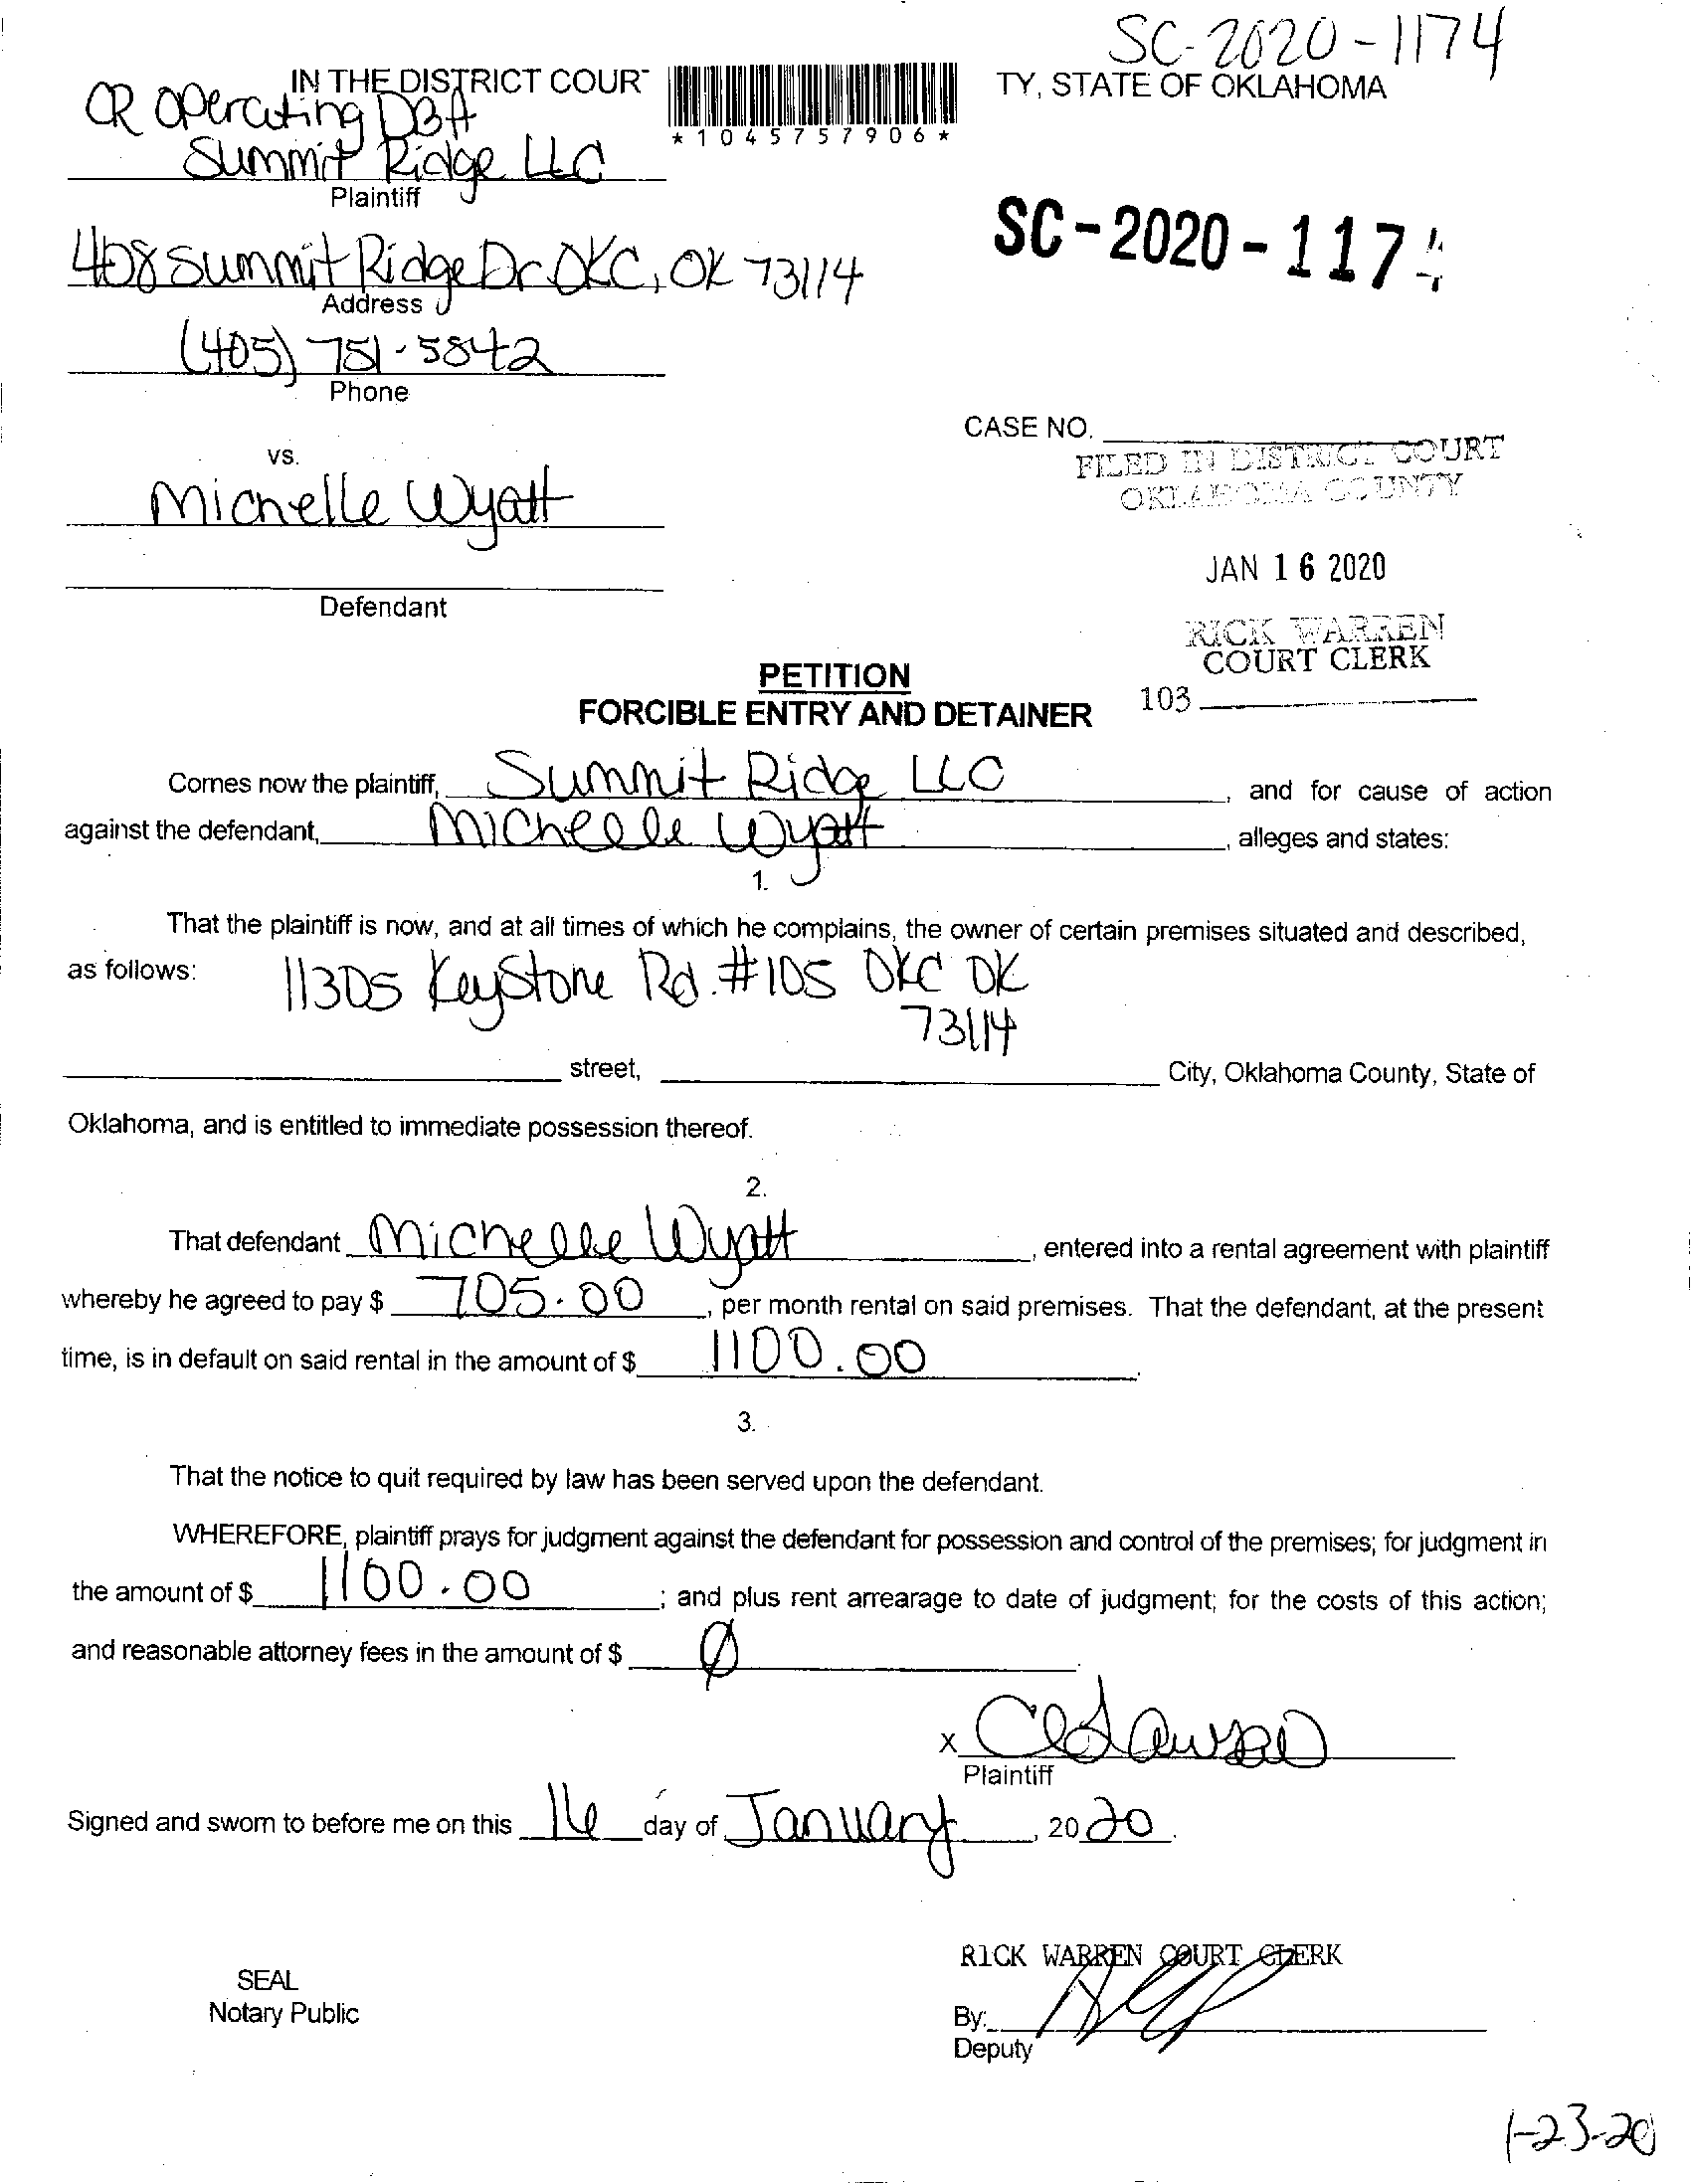 SC-2020-1174
IN THE DISTRICT COURT TY, STATE OF OKLAHOMA
*1045757906*
CR Operating DBA
Summit Ridge LLC
Plaintiff
408 Summit Ridge Dr OKC, OK 73114
Address
SC-2020-117
(405) 751-5842
Phone
CASE NO.
vs.
FILED IN DISTRICT COURT
OKLAHOMA COUNTY
Michelle Wyatt
JAN 16 2020
Defendant
RICK WARREN
COURT CLERK
103
PETITION
FORCIBLE ENTRY AND DETAINER
Comes now the plaintiff, Summit Ridge LLC, and for cause of action
against the defendant, Michelle Wyatt, alleges and states:
1.
That the plaintiff is now, and at all times of which he complains, the owner of certain premises situated and described,
as follows: 11305 Keystone Rd. #105 OKC OK
73114
street, City, Oklahoma County, State of
Oklahoma, and is entitled to immediate possession thereof.
2.
That defendant Michelle Wyatt, entered into a rental agreement with plaintiff
whereby he agreed to pay $ 705.00, per month rental on said premises. That the defendant, at the present
time, is in default on said rental in the amount of $ 1100.00.
3.
That the notice to quit required by law has been served upon the defendant.
WHEREFORE, plaintiff prays for judgment against the defendant for possession and control of the premises; for judgment in
the amount of $ 1100.00; and plus rent arrearage to date of judgment; for the costs of this action;
and reasonable attorney fees in the amount of $ Ø.
X
Plaintiff
Signed and sworn to before me on this 16 day of January, 2020.
RICK WARREN COURT CLERK
SEAL
Notary Public
By:
Deputy
1-23-20